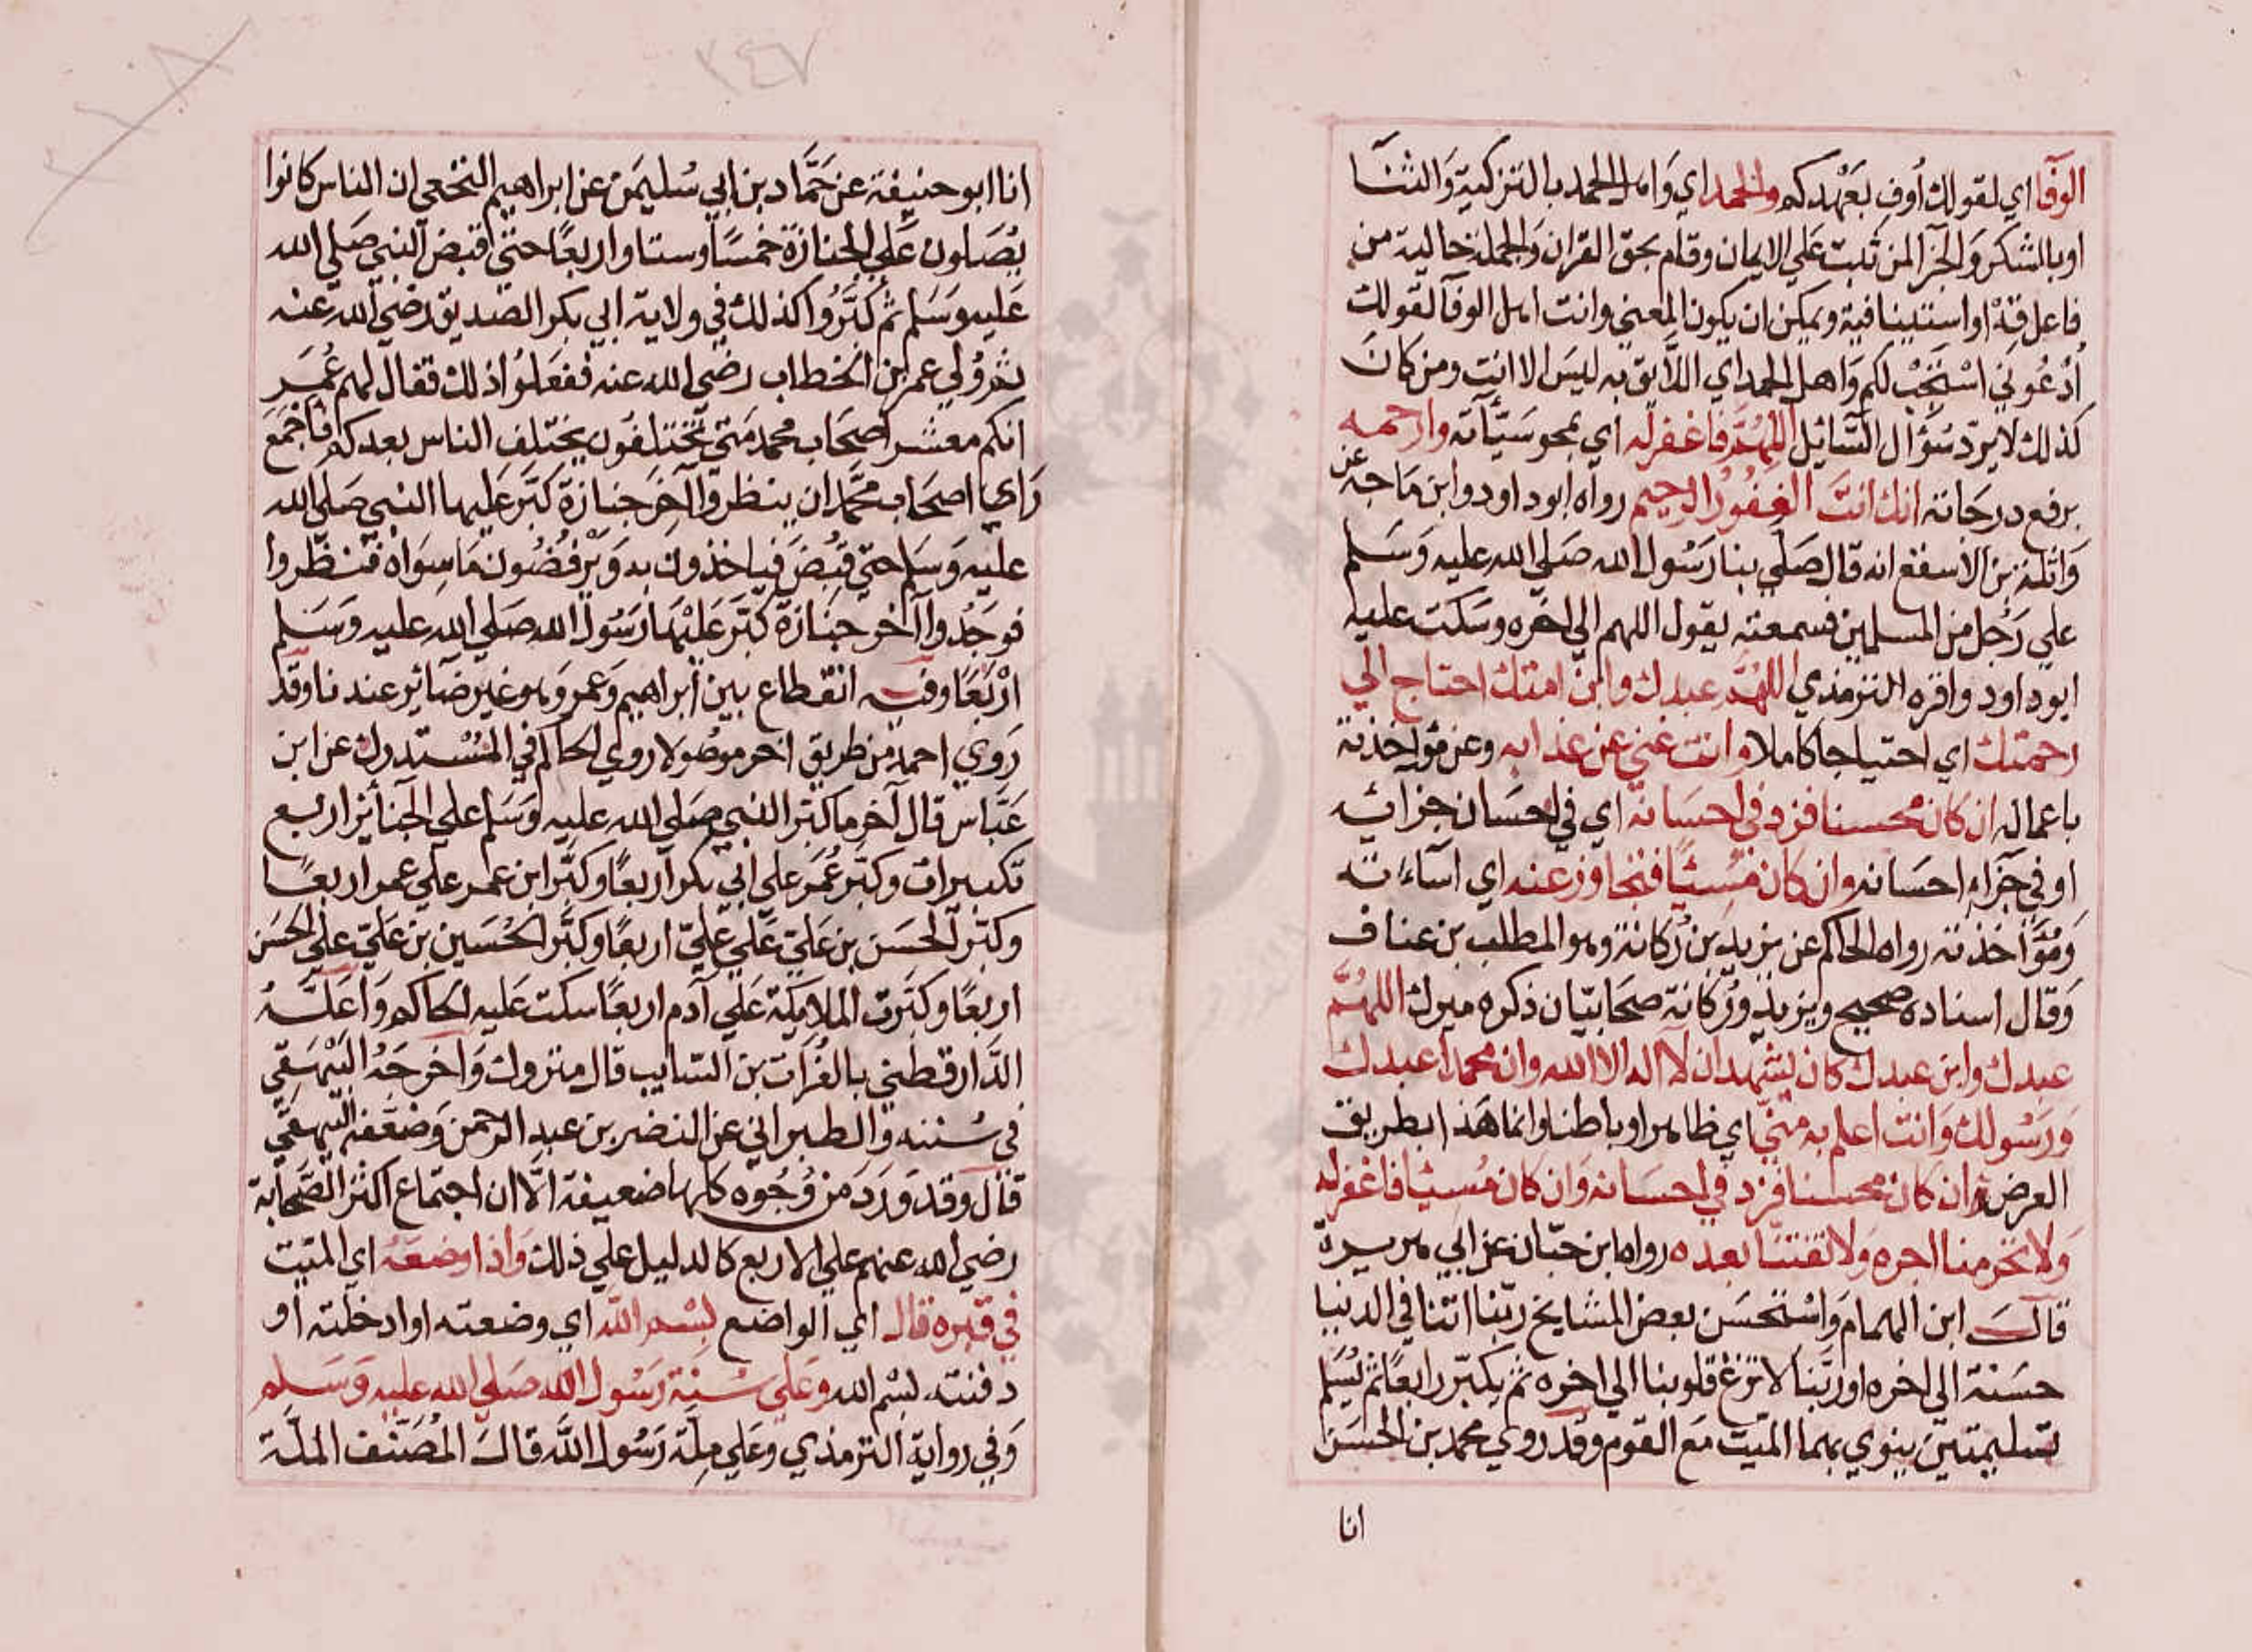 الوفا اي لقولك أوف بعهدكم والحمد اي واهل الحمد بالتزكية والثنا
او بالشكر والجزا لمن ثبت علي الايمان وقام بحق القران والجملة حالية من
فاعل قه او استينافية ويمكن ان يكون المعني وانت اهل الوفا لقولك
أدعوني استجب لكم واهل الحمد اي اللايق به ليس الا انت ومن كان
كذلك لا يرد سؤال السائل اللهم فاغفر له اي بمحو سيئاته وارحمه
برفع درجاته انك انت الغفور الرحيم رواه ابو داود وابن ماجه عن
واثلة بن الاسقع انه قال صلي بنا رسول الله صلي الله عليه وسلم
علي رجل من المسلمين فسمعته يقول اللهم الي اخره وسكت عليه
ابو داود واقره الترمذي اللهم عبدك وابن امتك احتاج الي
رحمتك اي احتياجا كاملا وانت غني عن عذابه وعن مؤاخذته
باعماله ان كان محسنا فزد في احسانه اي في احسان جزائه
او في جزاء احسانه وان كان مسيئا فتجاوز عنه اي اساءته
ومؤاخذته رواه الحاكم عن يزيد بن ركانة وهو المطلب بن عناف
وقال اسناده صحيح ويزيد وركانة صحابيان ذكره ميرك اللهم
عبدك وابن عبدك كان يشهد ان لا اله الا الله وان محمدا عبدك
ورسولك وانت اعلم به مني اي ظاهرا وباطنا وانما هذا بطريق
العرض وان كان محسنا فزد في احسانه وان كان مسيئا فاغفر له
ولا تحرمنا اجره ولا تفتنا بعده رواه ابن حبان عن ابي هريرة
قال ابن الهمام واستحسن بعض المشايخ ربنا اتنا في الدنيا
حسنة الي اخره او ربنا لا تزغ قلوبنا الي اخره ثم يكبر رابعا ثم يسلم
تسليمتين ينوي بهما الميت مع القوم وقد روي محمد بن الحسن
انا
٢٤٧
انا ابو حنيفة عن حماد بن ابي سليمن عن ابراهيم النخعي ان الناس كانوا
يصلون علي الجنازة خمسا وستا واربعا حتي قبض النبي صلي الله
عليه وسلم ثم كبروا كذلك في ولاية ابي بكر الصديق رضي الله عنه
ثم ولي عمر ابن الخطاب رضي الله عنه ففعلوا ذلك فقال لهم عمر
انكم معشر اصحاب محمد متي تختلفون يختلف الناس بعدكم فاجمع
راي اصحاب محمد ان ينظروا آخر جنازة كبر عليها النبي صلي الله
عليه وسلم حتي قبض فياخذون به ويرفضون ما سواه فنظروا
فوجدوا آخر جنازة كبر عليها رسول الله صلي الله عليه وسلم
اربعا وفيه انقطاع بين ابراهيم وعمر وهو غير ضائر عندنا وقد
روي احمد من طريق اخر موصولا روي الحاكم في المستدرك عن ابن
عباس قال آخر ما كبر النبي صلي الله عليه وسلم علي الجنائز اربع
تكبيرات وكبر عمر علي ابي بكر اربعا وكبر ابن عمر علي عمر اربعا
وكبر الحسن بن علي علي علي اربعا وكبر الحسين بن علي علي الحسن
اربعا وكبرت الملايكة علي آدم اربعا سكت عليه الحاكم واعله
الدارقطني بالفرات بن السايب قال متروك واخرجه البيهقي
في سننه والطبراني عن النضر بن عبد الرحمن وضعفه البيهقي
قال وقد ورد من وجوه كلها ضعيفة الا ان اجتماع اكثر الصحابة
رضي الله عنهم علي الاربع كالدليل علي ذلك واذا وضعه اي الميت
في قبره قال اي الواضع بسم الله اي وضعته او ادخلته او
دفنته بسم الله وعلي سنة رسول الله صلي الله عليه وسلم
وفي رواية الترمذي وعلي ملة رسول الله قال المصنف الملة